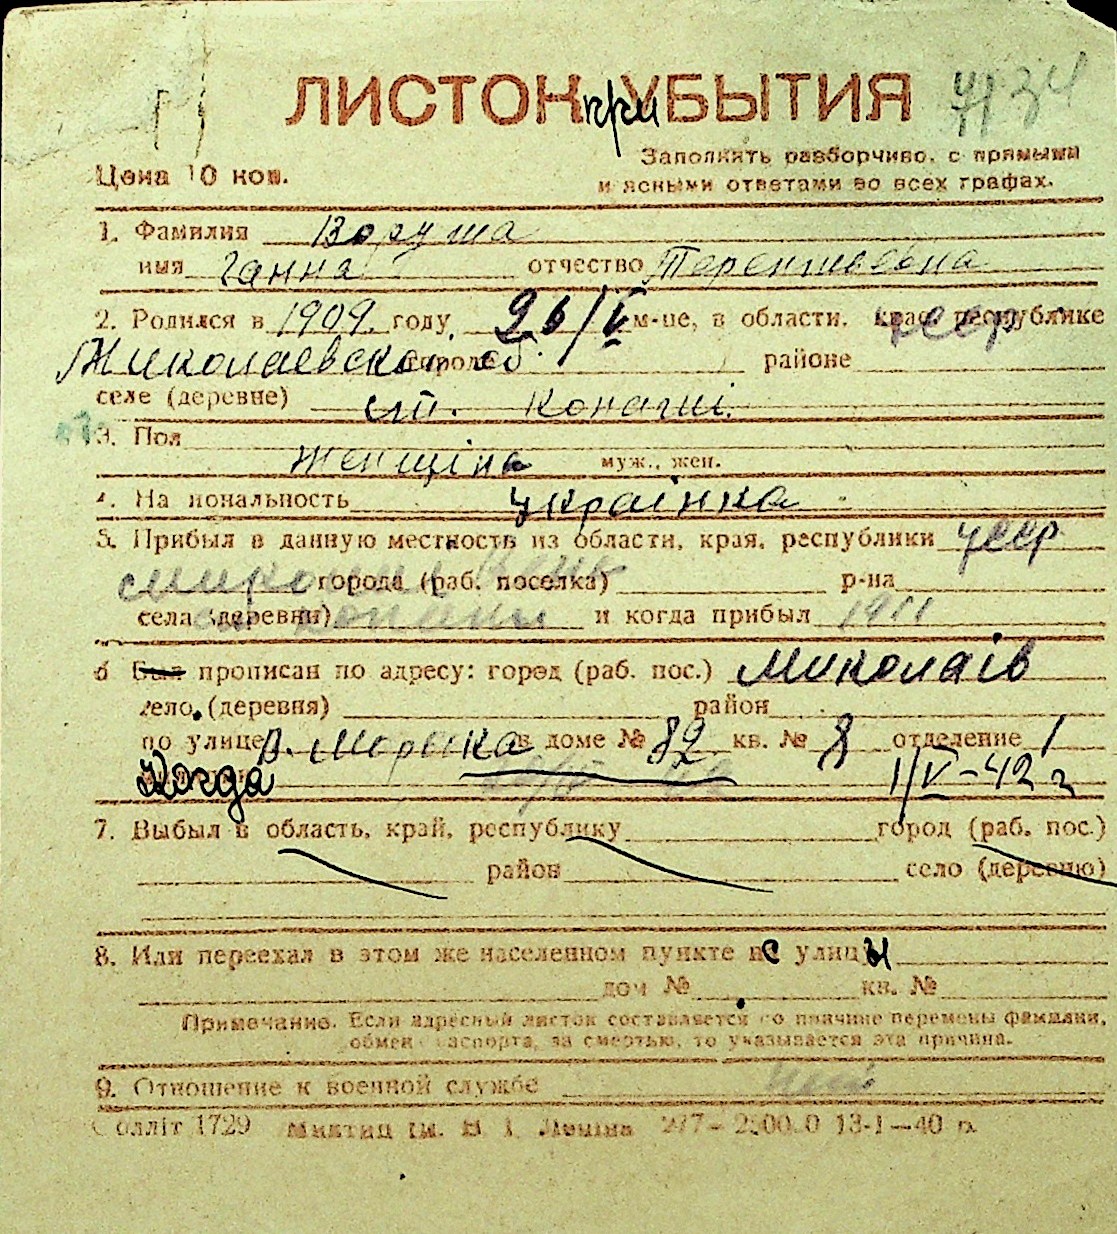 ЛИСТОК при УБЫТИЯ
Цена 10 коп.
Заполнять разборчиво, с прямыми
и ясными ответами во всех графах.
1. Фамилия Воруша
имя Ганна отчество Терентьевна
2. Родился в 1909. году, 26/V м-це, в области, края, республике УССР
Миколаевской об. городе районе
селе (деревне) ст. Копани.
3. Пол
Женщіна муж., жен.
4. Национальность українка
5. Прибыл в данную местность из области, края, республики УССР
города (раб. поселка) р-на
села (деревни) Копани и когда прибыл 1911
6 Был прописан по адресу: город (раб. пос.) Миколаів
село (деревня) район
по улице В. Морская в доме № 82 кв. № 8 отделение 1
Когда 1/V-42 г
7. Выбыл в область, край, республику город (раб. пос.)
район село (деревню)
8. Или переехал в этом же населенном пункте с улицы
дом № кв. №
Примечание. Если адресный листок составляется по причине перемены фамилии,
обмен паспорта, за смертью, то указывается эта причина.
9. Отношение к военной службе
Облліт 1729 Миктип ім. В. І. Леніна 277- 13-I-40 г.